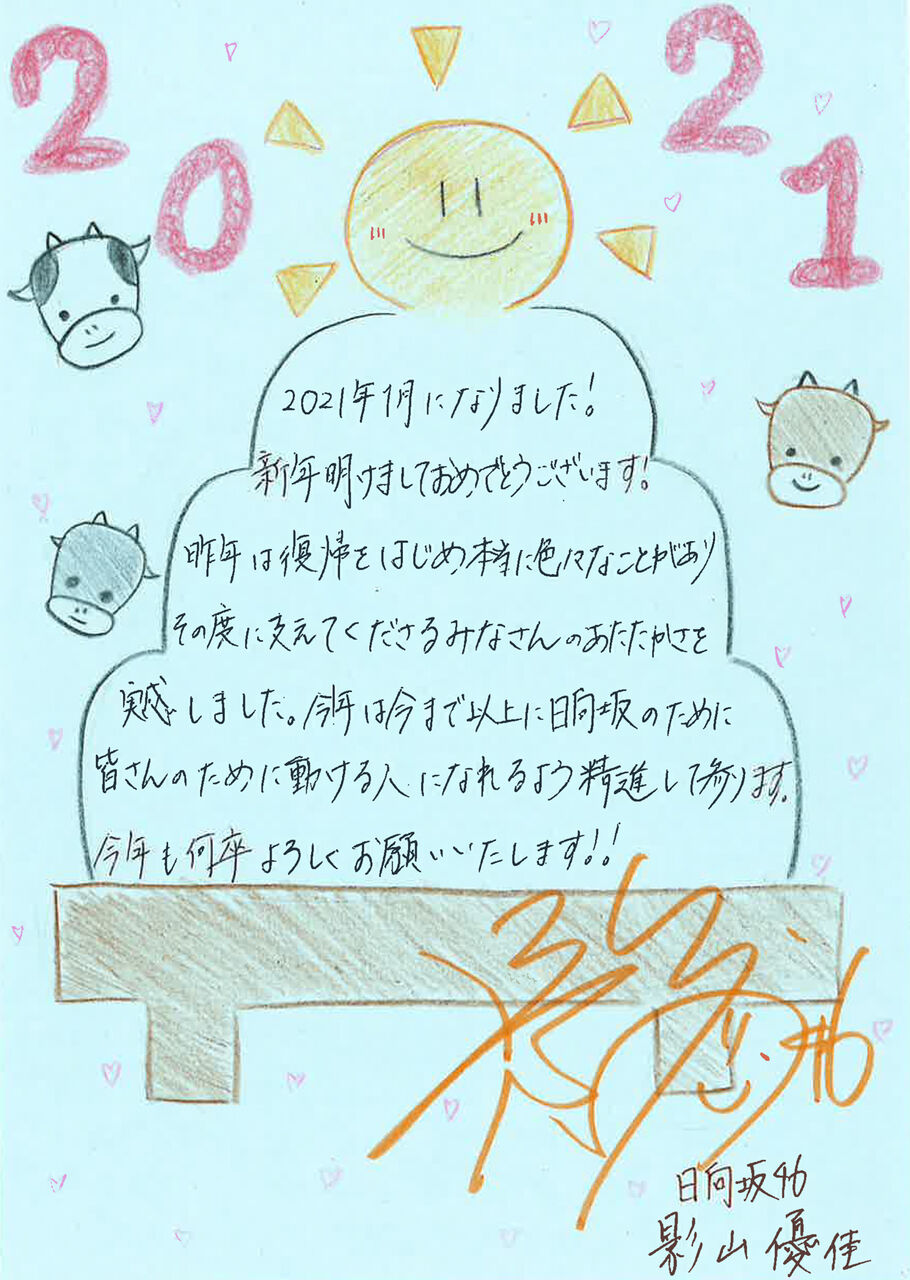 2021
2021年1月になりました!
新年明けましておめでとうございます!
昨年は復帰をはじめ本当に色々なことがあり
その度に支えてくださるみなさんのあたたかさを
実感しました。今年は今まで以上に日向坂のために
皆さんのために動ける人になれるよう精進して参ります。
今年も何卒よろしくお願いいたします!!
日向坂46
影山優佳